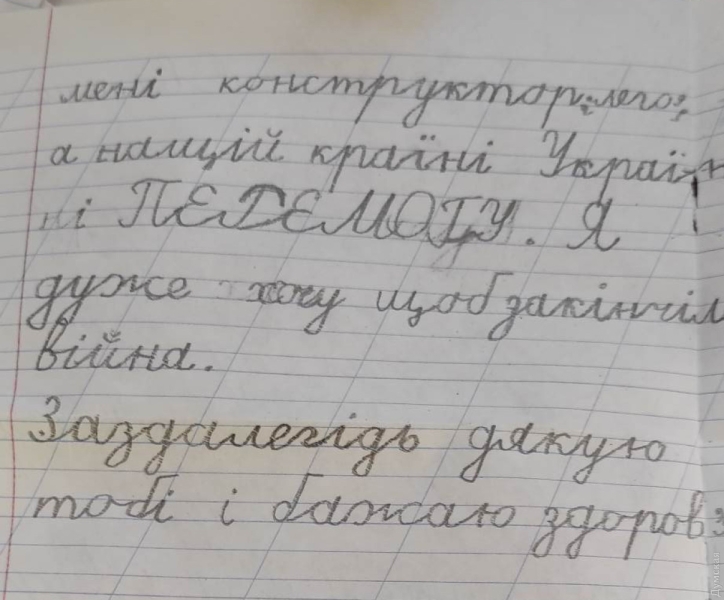 мені конструктор:лего;
а нашцій країні Украї
ні ПЕДЕМОЦУ. Я
дуже хочу щоб закінчіл
війна.
Заздалегідь дякую
тобі і бажаю здоров